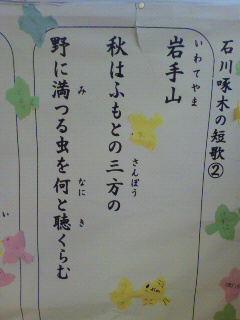 石川啄木の短歌②
岩手山
いわてやま
秋はふもとの三方の
さんぼう
野に満つる虫を何と聴くらむ
み
なに
き
い